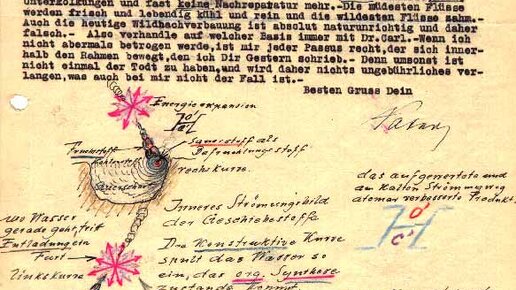 Unterkolkungen und fast keine Nachreparatur mehr.- Die müdesten Flüsse
werden frisch und lebendig kühl und rein und die wildesten Flüsse zahm.-
Auch die heutige Wildbachverbauung ist absolut naturunrichtig und daher
falsch.- Also verhandle auf welcher Basis immer mit Dr.Carl.-Wenn ich
nicht abermals betrogen werde,ist mir jeder Passus recht,der sich inner
halb den Rahmen bewegt,den ich Dir Gestern schrieb.- Denn umsonst ist
nicht einmal der Todt zu haben,und wird daher nichts ungebührliches ver-
langen,was auch bei mir nicht der Fall ist.-
Besten Gruss Dein
Energieexpansion
Sauerstoff als
Befruchtungsstoff
Rechtskurve.
das aufgenertete und
am kalten Strömungsweg
atomar verbesserte Produkt.
Inneres Strömungsbild
der Geschiebestoffe
wo Wasser
gerade geht, tritt
Entladung ein
Fort
Linkskurve
Die Konstruktive Kurve
spult das Wasser so
ein, das org. Synthese
zustande kommt.